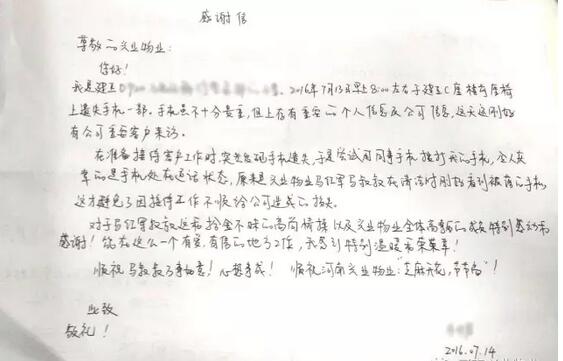 感谢信
尊敬的兴业物业：
你好！
我是建五 2016年7月13日早上8:00左右于建五C座楼前座椅
上遗失手机一部。手机虽不十分贵重，但上存有重要的个人信息及公司信息，这天这刚好
有公司重要客户来访。
在准备接待客户工作时，突然发现手机遗失，于是尝试用同事手机拨打我的手机，令人庆
幸的是手机处在通话状态，原来是兴业物业马红军马叔叔在清洁时刚好看到被有的手机，
这才避免了因接待工作不顺给公司造成的损失。
对于马红军叔叔这种拾金不昧的高尚情操以及兴业物业全体高素质的成员特别感动和
感谢！能在这么一个有爱、有情的地方工作，我感到特别温暖和荣幸！
顺祝马叔叔万事如意！心想事成！ 顺祝河南兴业物业“芝麻开花，节节高”！
此致
敬礼！
2016.07.14